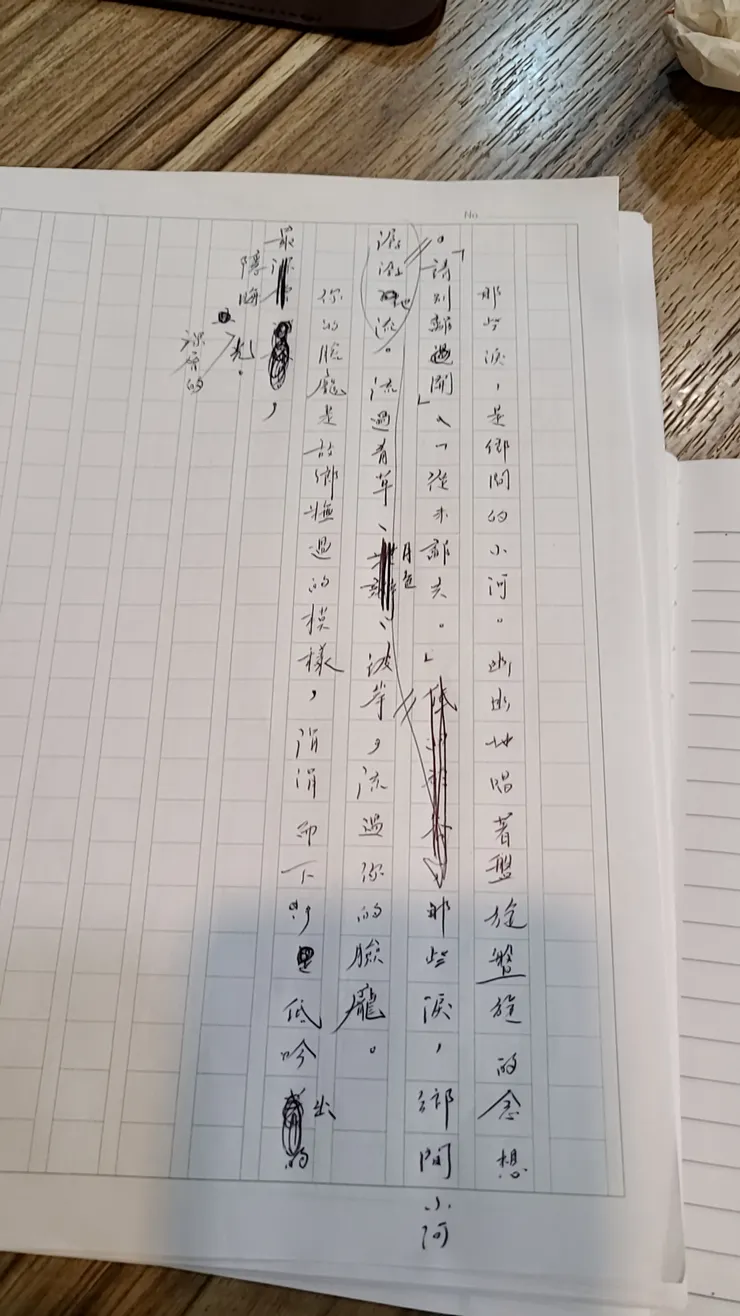 No
那些淚，是鄉間的小河。幽幽地唱著盤旋盤旋的念想
。「請別離過開」、「從未離去。」那些淚，鄉間小河
游游地流。流過青草、月色、彼岸，流過你的臉龐。
你的臉龐是故鄉撫過的模樣，涓涓而下時低吟出的
最隱晦，
光。
深層的